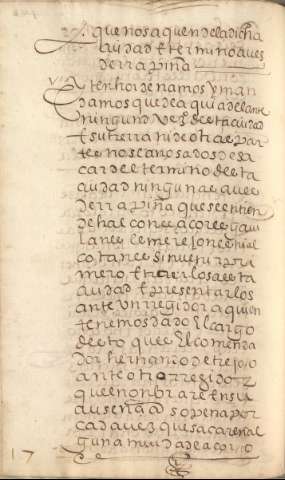 que no saquen de la dicha
ciudad e termino aves
de rrapiña
Otrosi hordenamos y man
damos que de aqui adelante
ningund vezº desta ciudad
e su tierra ni de otra par
te no sean osados de sa
car del termino desta
ciudad ninguna ave
de rrapiña que se entien
de halcones açores gavi
lanes esmerejones ni al
cotanes sin venir pri
mero e traerlos a esta
ciudad e presentarlos
ante un regidor a quien
tenemos dado el cargo
desto que es el comenda
dor hernando de trejo o
ante otro rregidor
que nonbrare en su
ausençia so pena por
cada vez que sacaren al
guna muda de açores
17